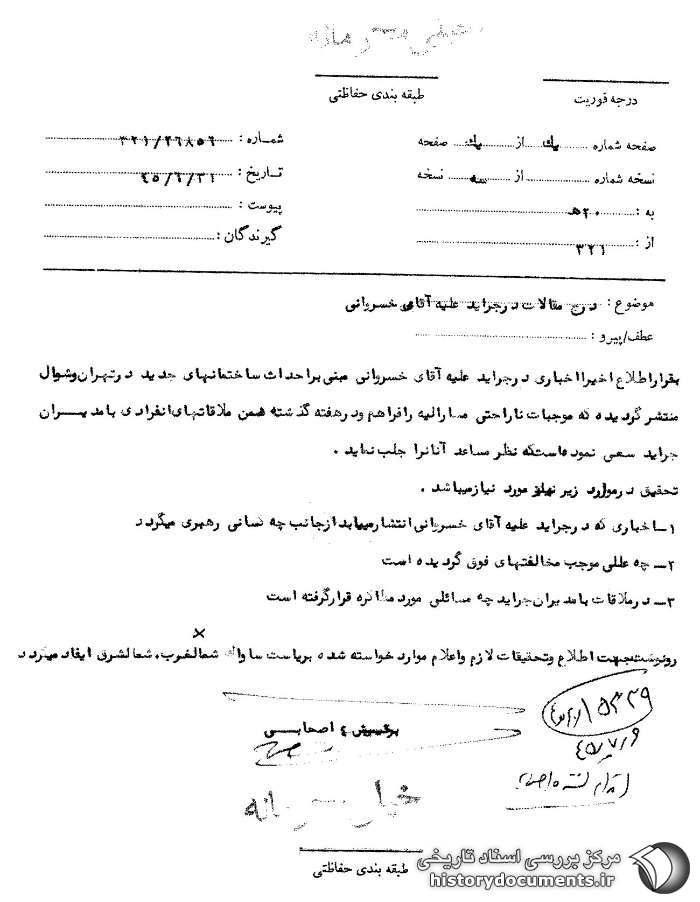 خیلی محرمانه
درجه فوریت
طبقه بندی حفاظتی
صفحه شماره یک از یک صفحه
شماره : ۳۲۱/۲۶۸۵۶
نسخه شماره از سه نسخه
تاریخ : ۴۵/۶/۳۱
به : ۲۰ ه‍
پیوست :
از : ۳۲۱
گیرندگان :
موضوع : درج مقالات در جراید علیه آقای خسروانی
عطف/پیرو :
بقرار اطلاع اخیرا اخباری در جراید علیه آقای خسروانی مبنی بر احداث ساختمانهای جدید در تهران و شوال
منتشر گردیده که موجبات ناراحتی مشارالیه را فراهم و در هفته گذشته ضمن ملاقاتهای انفرادی با مدیران
جراید سعی نموده است که نظر مساعد آنانرا جلب نماید .
تحقیق در موارد زیر مورد نیاز میباشد .
۱- اخباری که در جراید علیه آقای خسروانی انتشار مییابد از جانب چه کسانی رهبری میگردد
۲- چه عللی موجب مخالفتهای فوق گردیده است
۳- در ملاقات با مدیران جراید چه مسائلی مورد مذاکره قرار گرفته است
رونوشت جهت اطلاع و تحقیقات لازم و اعلام موارد خواسته شده بریاست ساواک شمالغرب، شمالشرق ایفاد میگردد
اصحابی
۴۵/۷/۶
خیلی محرمانه
طبقه بندی حفاظتی
مرکز بررسی اسناد تاریخی
historydocuments.ir